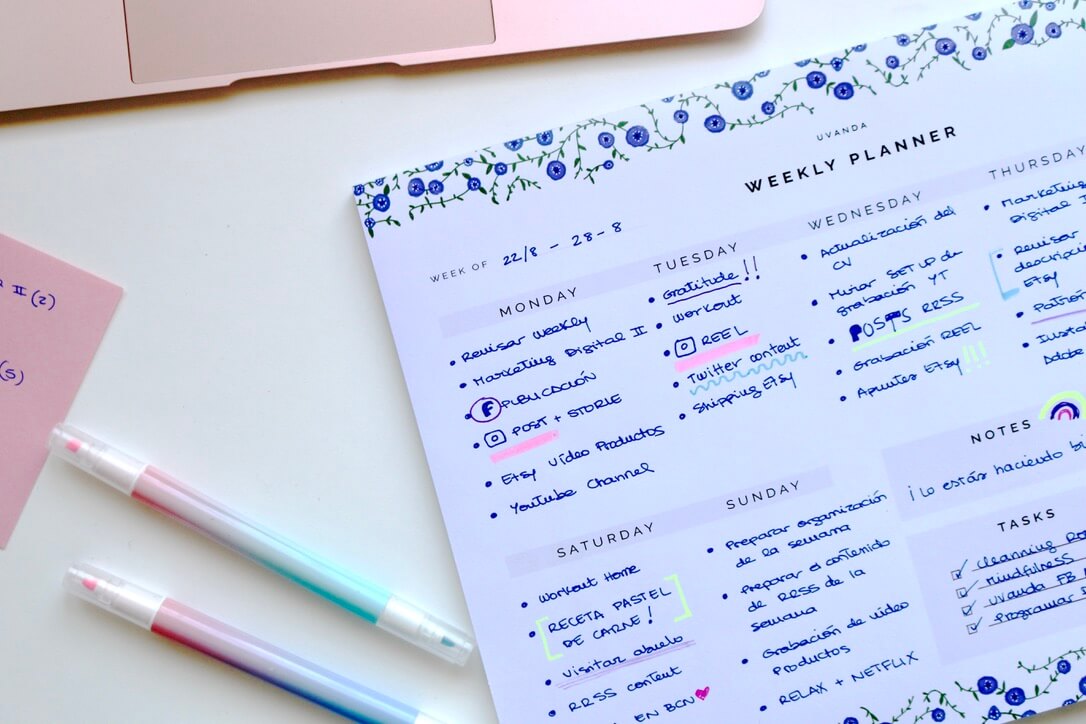 II (2)
(5)
UVANDA
WEEKLY PLANNER
WEEK OF 22/8 - 28-8
MONDAY
• Revisar weekly
• Marketing Digital II
• f PUBLICACIÓN
• POST + STORIE
• Etsy video Productos
• Youtube Channel
TUESDAY
• Gratitude!!
• workout
• REEL
• Twitter content
• Shipping Etsy
WEDNESDAY
• Actualización del
CV
• Mirar SET UP de
grabación YT
• POSTS RRSS
• Grabación REEL
• Apuntes Etsy!!!
THURSDAY
• Marketing
Digital
• Revisar
Etsy
SATURDAY
• Workout Home
• RECETA PASTEL
DE CARNE!
• Visitar abuelo
• RRSS content
EN BCN
SUNDAY
• Preparar organización
de la semana
• Preparar el contenido
de RRSS de la
semana
• Grabación de video
Productos
• RELAX + NETFLIX
NOTES
¡Lo estás haciendo
TASKS
Cleanning
Mindfulness
Uvanda FB
Programar